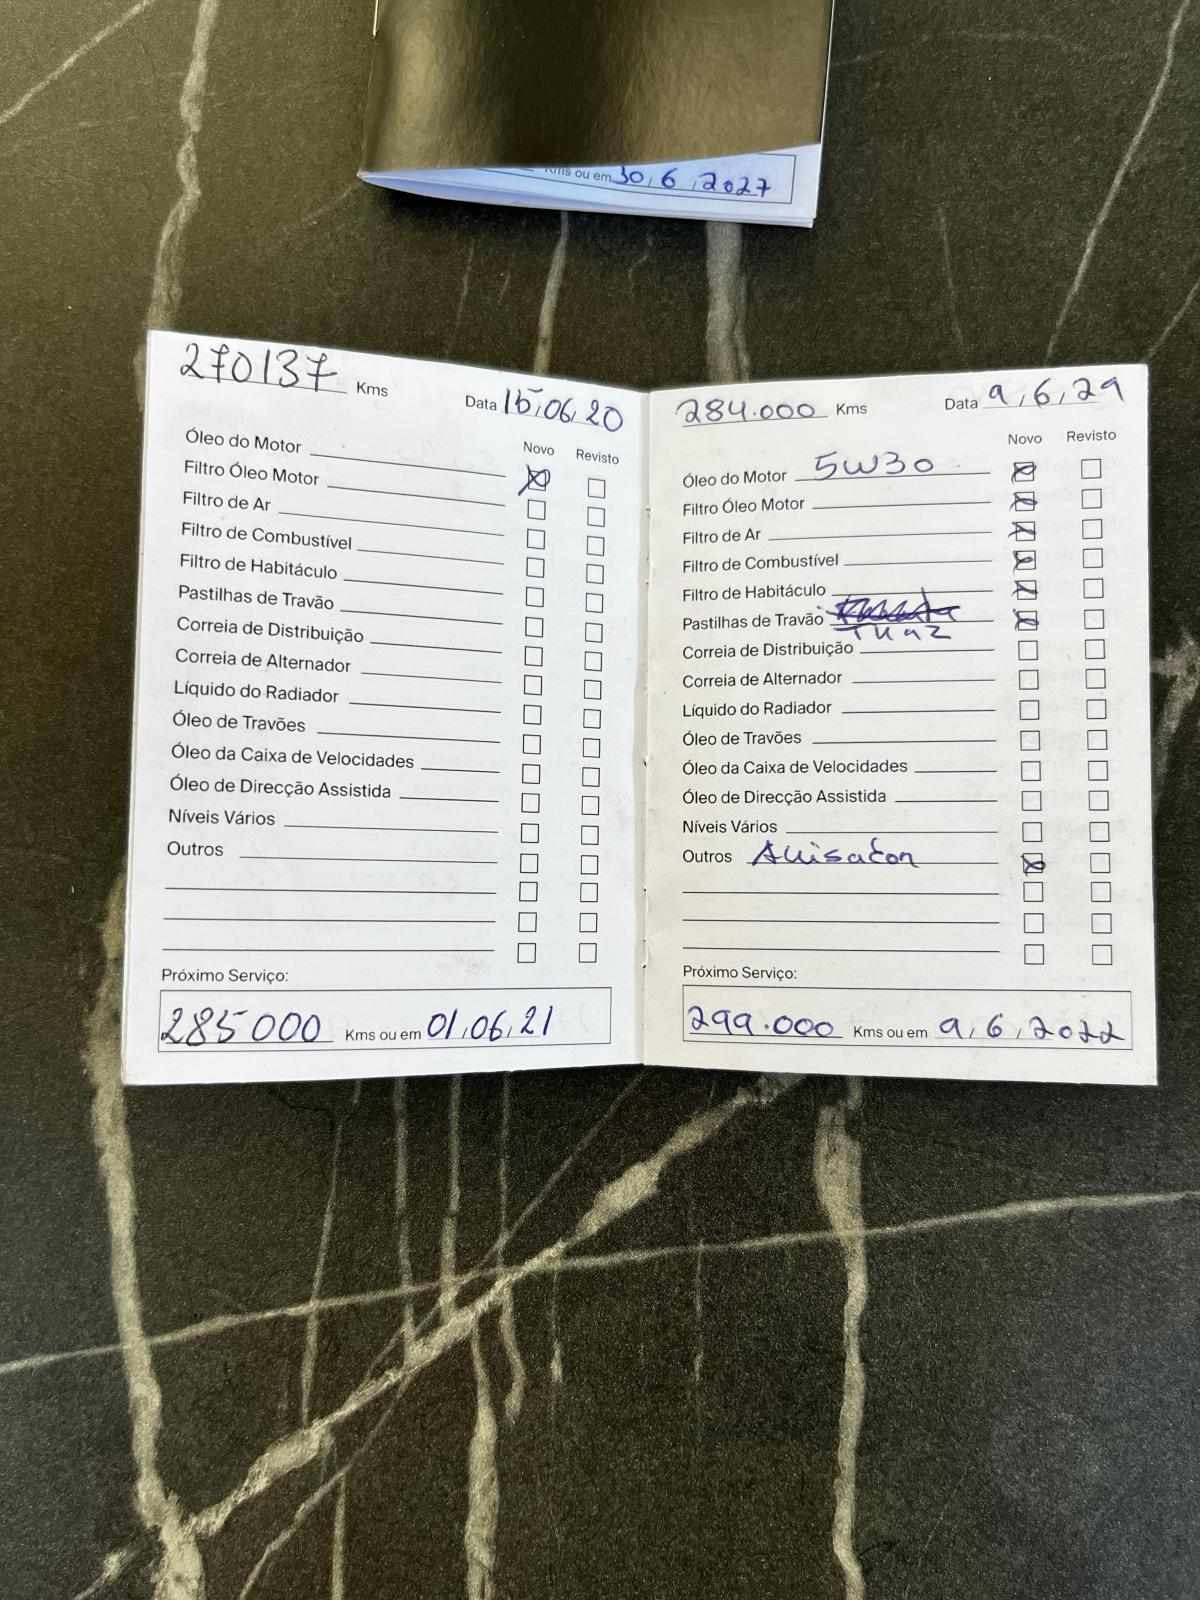 Kms ou em 30,6,2027
270137 Kms
Data 15,06,20
Novo Revisto
Óleo do Motor
Filtro Óleo Motor
Filtro de Ar
Filtro de Combustível
Filtro de Habitáculo
Pastilhas de Travão
Correia de Distribuição
Correia de Alternador
Líquido do Radiador
Óleo de Travões
Óleo da Caixa de Velocidades
Óleo de Direcção Assistida
Níveis Vários
Outros
Próximo Serviço:
285000 Kms ou em 01,06,21
284.000 Kms Data 9,6,29
Novo Revisto
Óleo do Motor 5W30
Filtro Óleo Motor
Filtro de Ar
Filtro de Combustível
Filtro de Habitáculo
Pastilhas de Travão
Correia de Distribuição
Correia de Alternador
Líquido do Radiador
Óleo de Travões
Óleo da Caixa de Velocidades
Óleo de Direcção Assistida
Níveis Vários
Outros
Próximo Serviço:
299.000 Kms ou em 9,6,2022